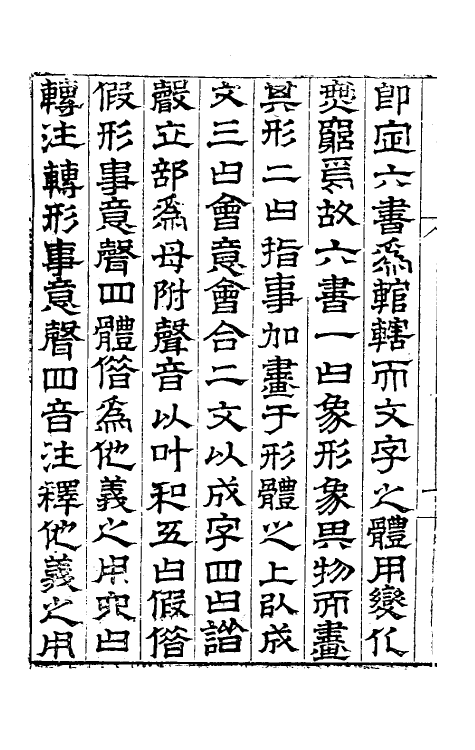 即定六書爲輨轄而文字之體用變化
無窮焉故六書一曰象形象異物而畫
其形二曰指事加畫于形體之上以成
文三曰會意會合二文以成字四曰諧
聲立部爲母附聲音以叶和五曰假借
假形事意聲四體借爲他義之用六曰
轉注轉形事意聲四音注釋他義之用